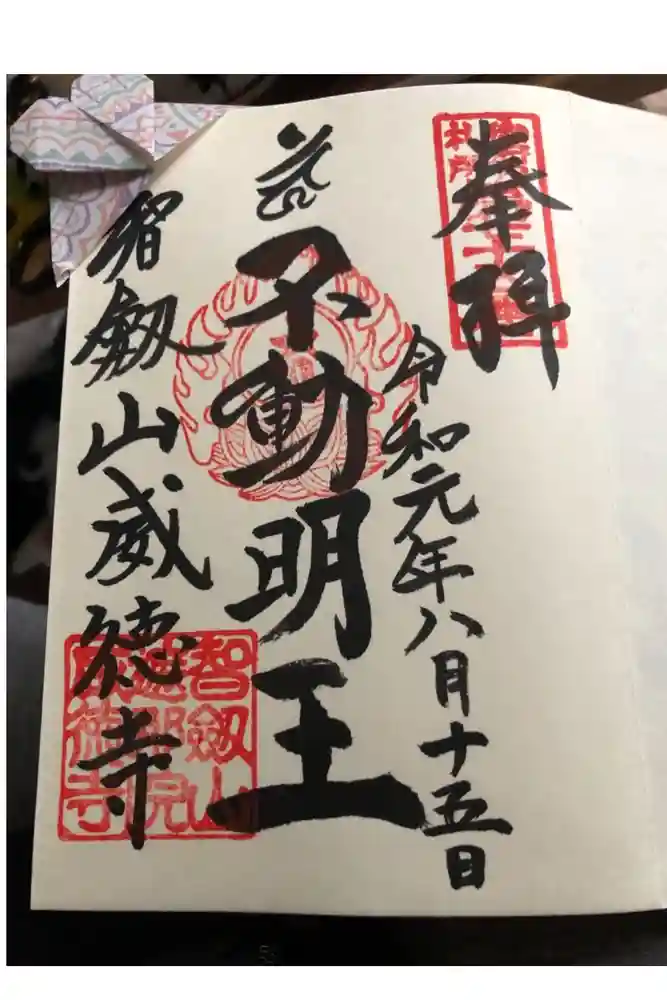 奉拝
令和元年八月十五日
不動明王
智劔山威徳寺
智劔山
威徳寺